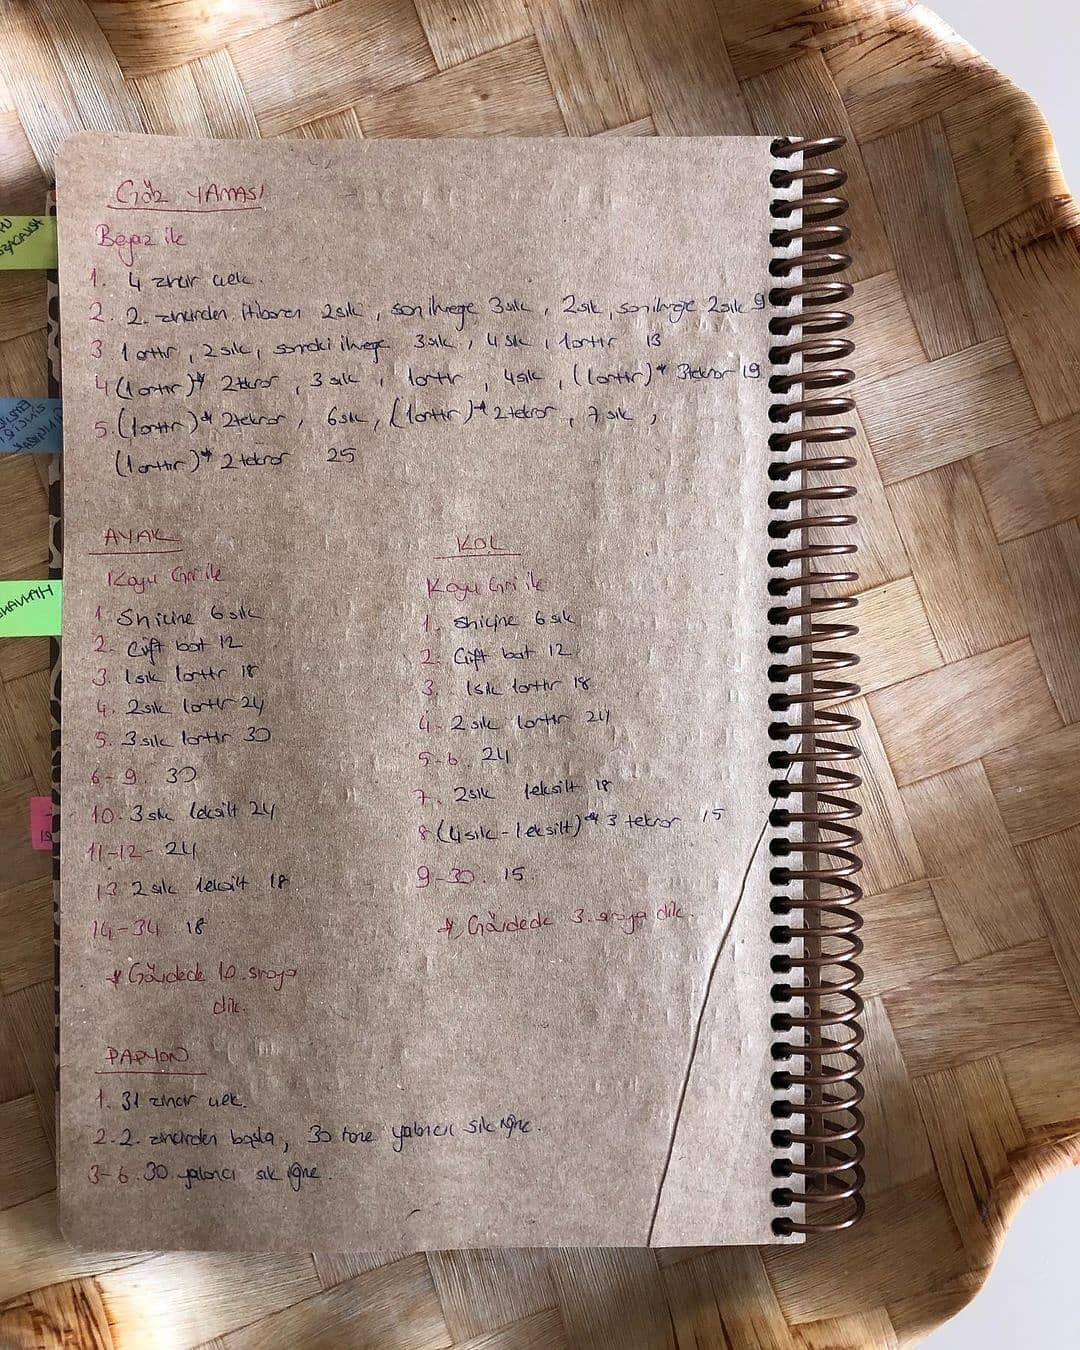 GÖZ YAMASI
Beyaz ile
1. 4 zincir çek.
2. 2. zincirden itibaren 2 sık, son ilmeğe 3 sık, 2 sık, son ilmeğe 2 sık 9
3 1 arttır, 2 sık, sonraki ilmeğe 3 sık, 4 sık, 1 arttır 13
4 (1 arttır)* 2 tekrar, 3 sık, 1 arttır, 4 sık, (1 arttır)* 3 tekrar 19
5. (1 arttır)* 2 tekrar, 6 sık, (1 arttır)* 2 tekrar, 7 sık,
(1 arttır)* 2 tekrar 25
AYAK
Koyu Gri ile
1. Sh içine 6 sık
2. Çift bat 12
3. 1 sık 1 arttır 18
4. 2 sık 1 arttır 24
5. 3 sık 1 arttır 30
6-9. 30
10. 3 sık 1 eksilt 24
11-12- 24
13 2 sık 1 eksilt 18
14-34. 18
* Gövdede 10. sıraya
dik.
KOL
Koyu Gri ile
1. Sh içine 6 sık
2. Çift bat 12
3. 1 sık 1 arttır 18
4. 2 sık 1 arttır 24
5-6. 24
7. 2 sık 1 eksilt 18
8 (4 sık - 1 eksilt)* 3 tekrar 15
9-30. 15.
* Gövdede 3. sıraya dik.
PAPYON
1. 31 zincir çek.
2. 2. zincirden başla, 30 tane yabancı sık iğne.
3-6. 30 yalancı sık iğne.